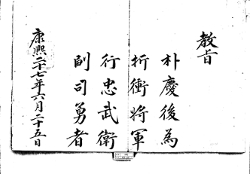 敎旨
朴慶後爲
折衝將軍
行忠武衛
副司勇者
康熙二十七年六月二十五日